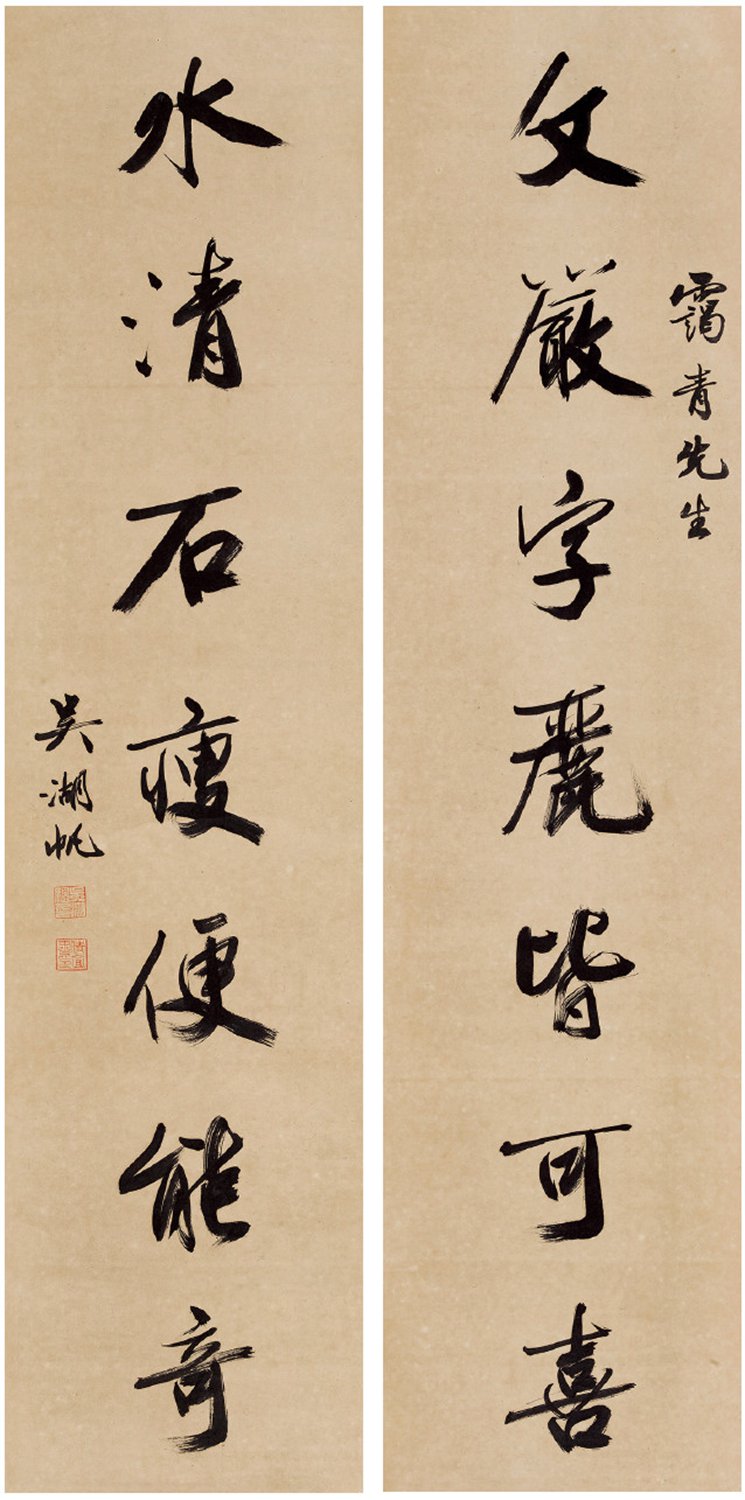 靄青先生
文嚴字麗皆可喜
水清石瘦便能奇
吳湖帆